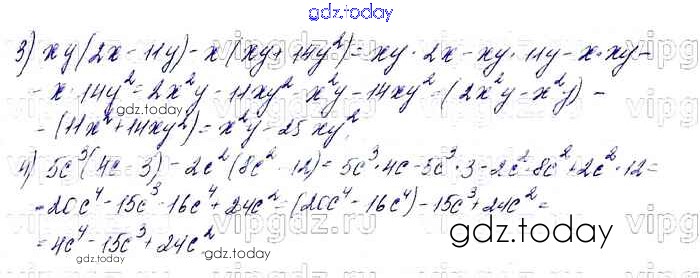 gdz.today
3) xy(2x - 11y) - x(xy + 14y²) = xy · 2x - xy · 11y - x · xy -
- x · 14y² = 2x²y - 11xy² - x²y - 14xy² = (2x²y - x²y) -
gdz.today
- (11x² + 14xy²) = x²y - 25xy²
4) 5c³(4c - 3) - 2c²(8c² - 12) = 5c³ · 4c - 5c³ · 3 - 2c² · 8c² + 2c² · 12 =
= 20c⁴ - 15c³ - 16c⁴ + 24c² = (20c⁴ - 16c⁴) - 15c³ + 24c² =
= 4c⁴ - 15c³ + 24c²
gdz.today
gdz.today